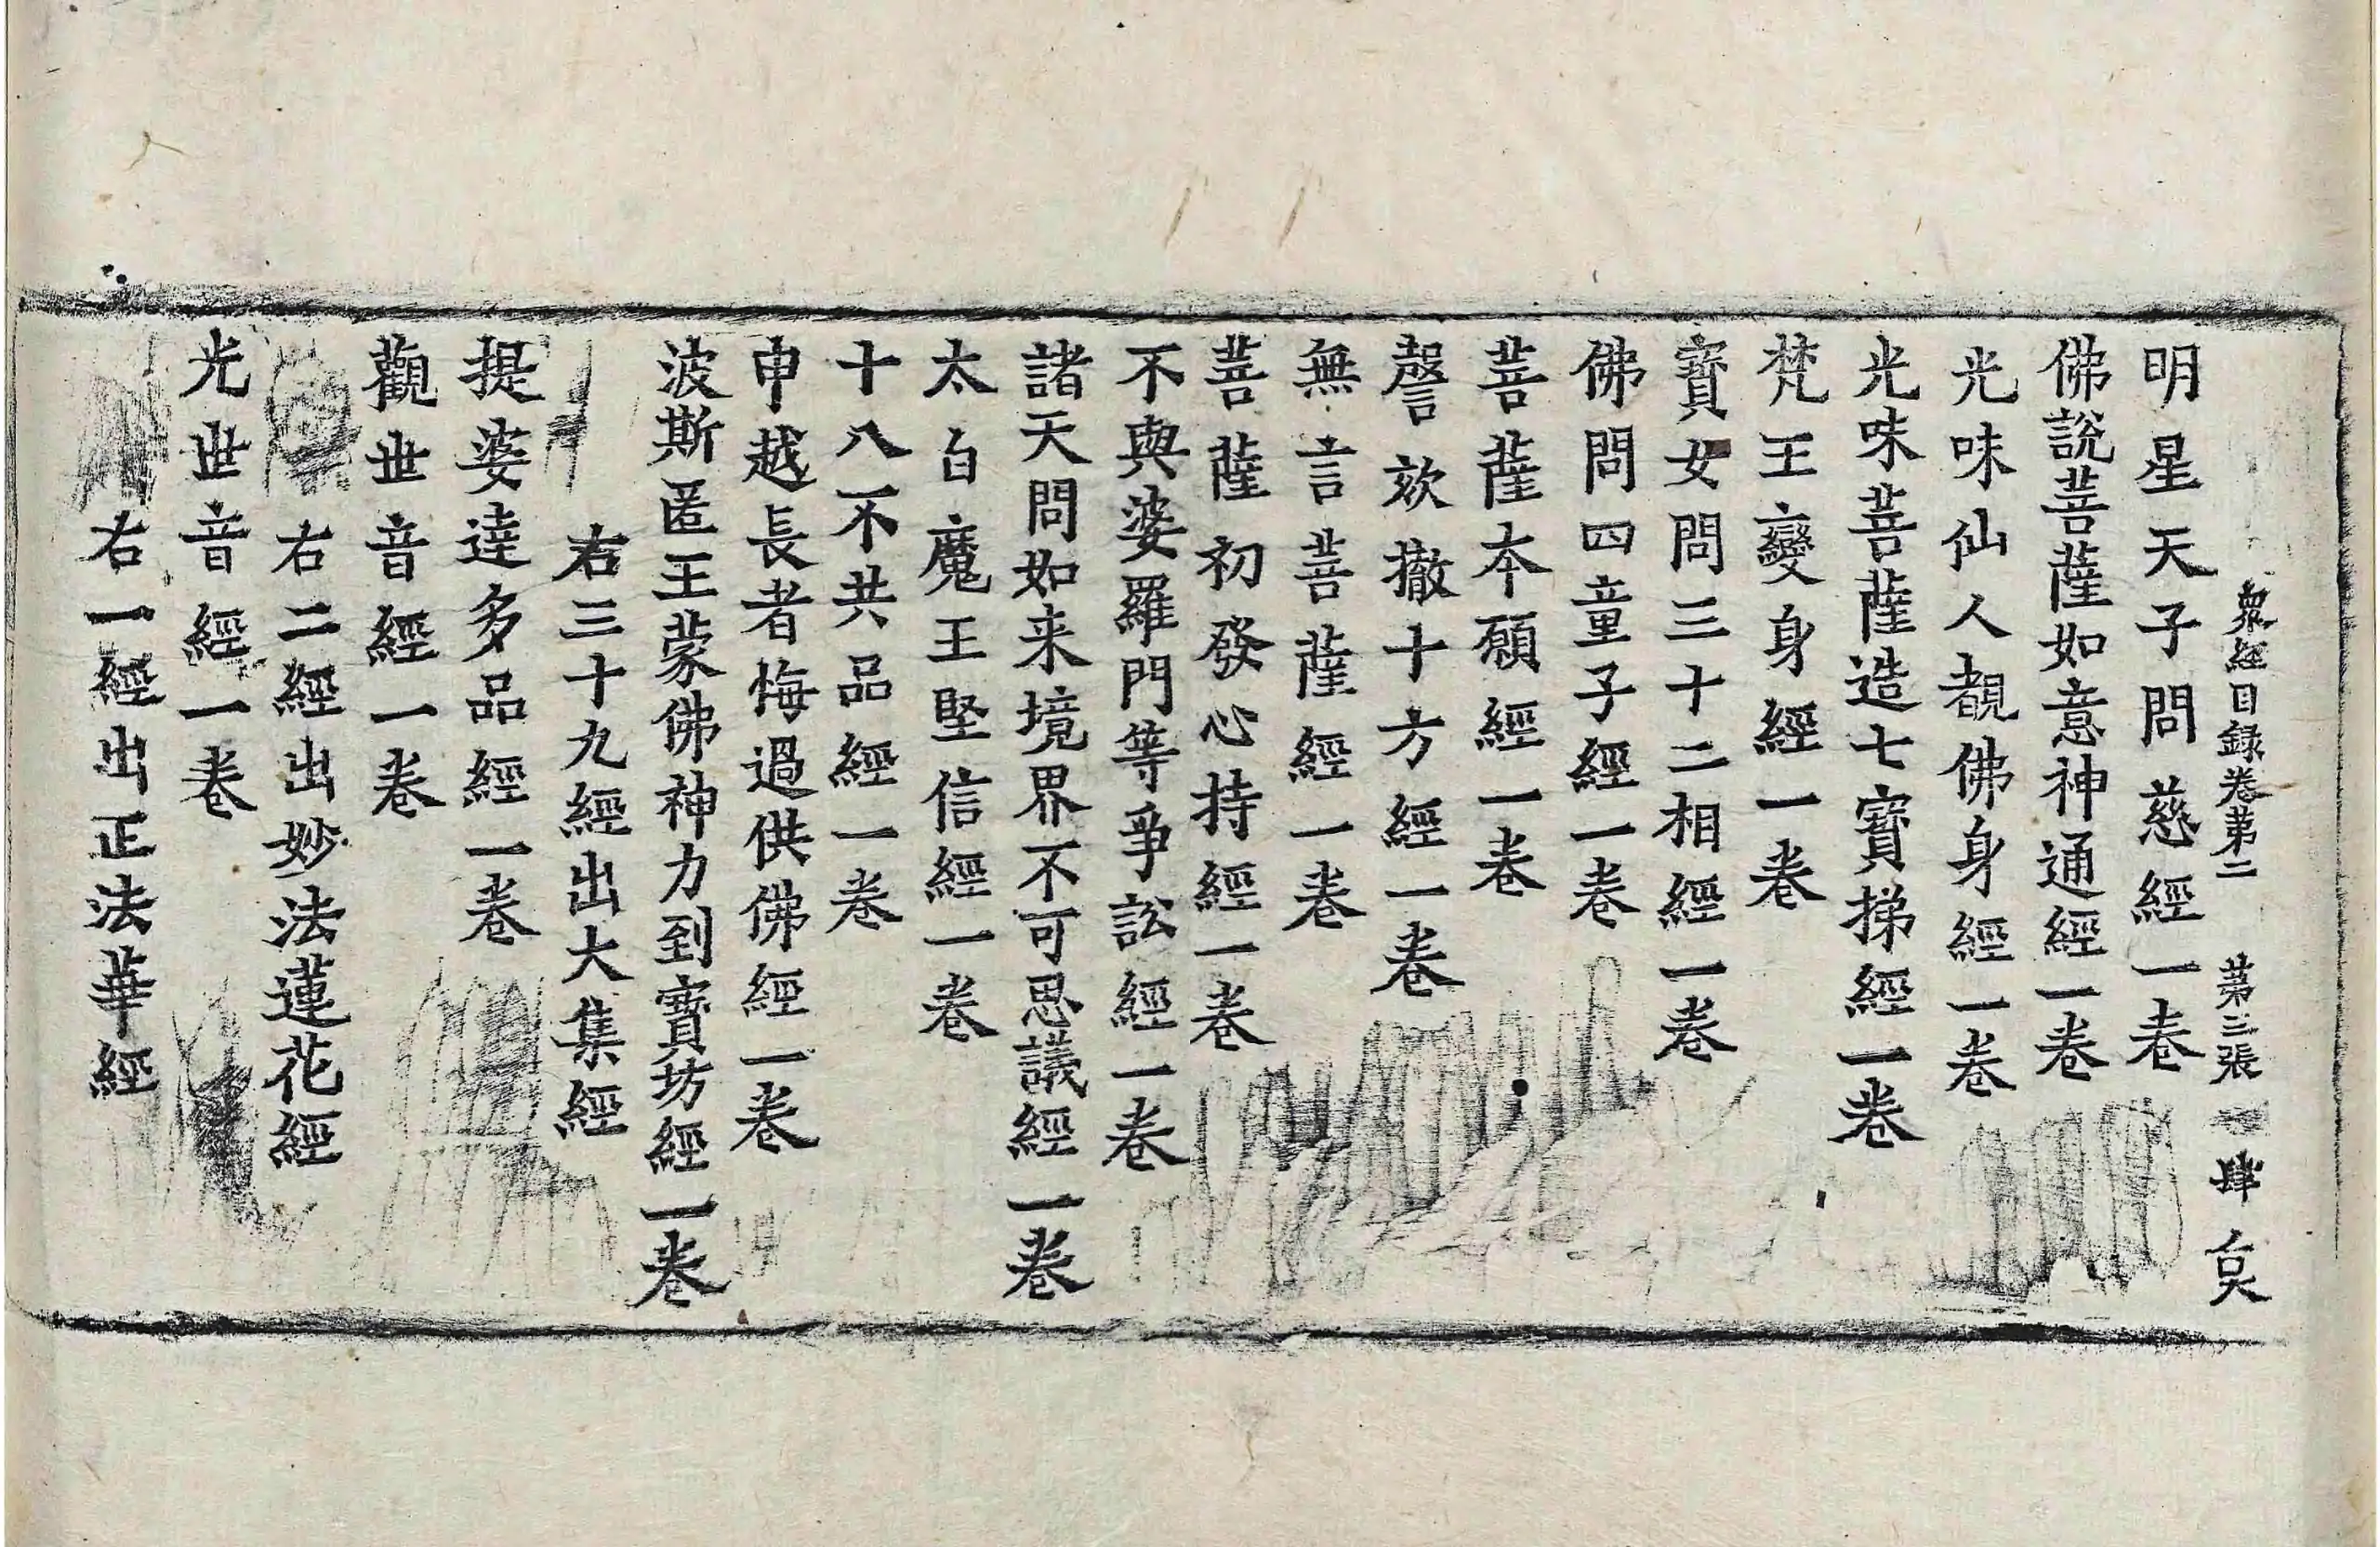 衆經目録卷第二 第三張 肆 㚖
明星天子問慈經一卷
佛說菩薩如意神通經一卷
光味仙人覩佛身經一卷
光味菩薩造七寶梯經一卷
梵王變身經一卷
寶女問三十二相經一卷
佛問四童子經一卷
菩薩本願經一卷
謦欬撤十方經一卷
無言菩薩經一卷
菩薩初發心持經一卷
不與婆羅門等爭訟經一卷
諸天問如来境界不可思議經一卷
太白魔王堅信經一卷
十八不共品經一卷
申越長者悔過供佛經一卷
波斯匿王蒙佛神力到寶坊經一卷
右三十九經出大集經
提婆達多品經一卷
觀世音經一卷
右二經出妙法蓮花經
光世音經一卷
右一經出正法華經